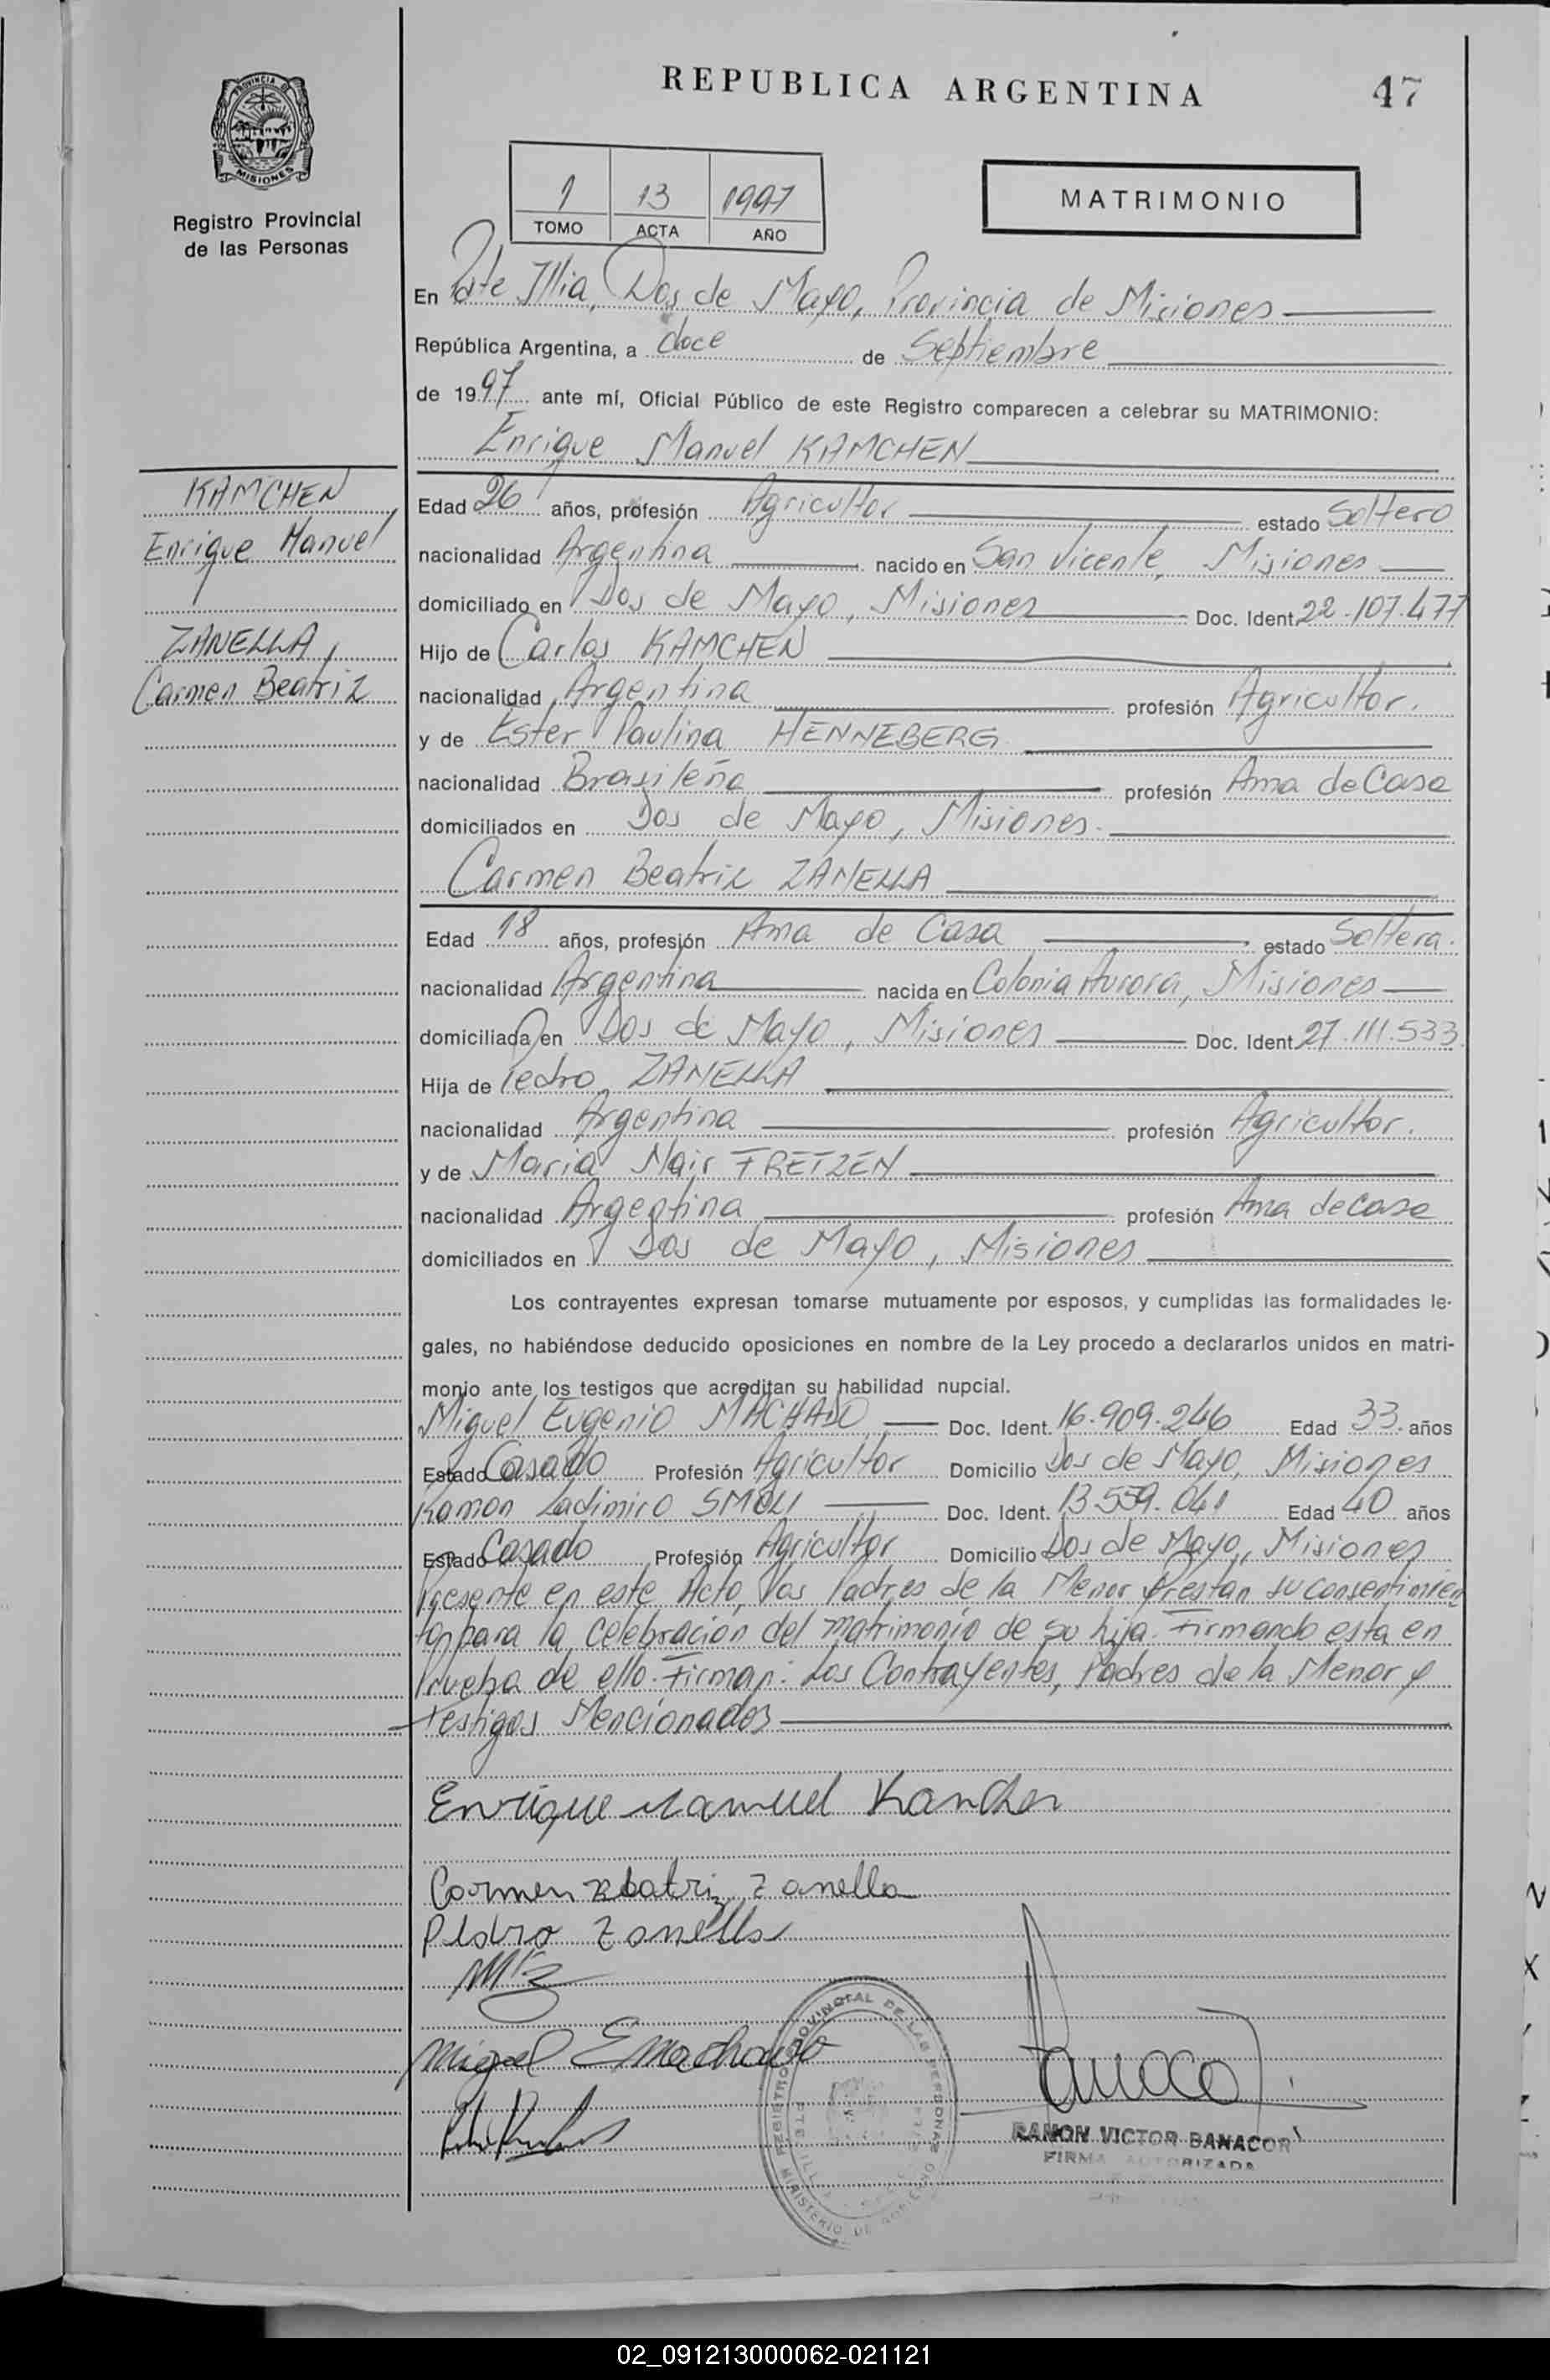 REPUBLICA ARGENTINA
47
PROVINCIA DE
MISIONES
Registro Provincial
de las Personas
1 13 1997
TOMO ACTA AÑO
MATRIMONIO
En Pte Illia, Dos de Mayo, Provincia de Misiones
República Argentina, a doce de Septiembre
de 1997 ante mí, Oficial Público de este Registro comparecen a celebrar su MATRIMONIO:
Enrique Manuel KAMCHEN
KAMCHEN
Enrique Manuel
ZANELLA,
Carmen Beatriz
Edad 26 años, profesión Agricultor estado Soltero
nacionalidad Argentina nacido en San Vicente, Misiones
domiciliado en Dos de Mayo, Misiones Doc. Ident. 22.107.477
Hijo de Carlos KAMCHEN
nacionalidad Argentina profesión Agricultor.
y de Ester Paulina HENNEBERG
nacionalidad Brasileña profesión Ama de Casa
domiciliados en Dos de Mayo, Misiones.
Carmen Beatriz ZANELLA
Edad 18 años, profesión Ama de Casa estado Soltera.
nacionalidad Argentina nacida en Colonia Aurora, Misiones
domiciliada en Dos de Mayo, Misiones Doc. Ident. 27.111.533
Hija de Pedro ZANELLA
nacionalidad Argentina profesión Agricultor.
y de Maria Nair FRETZEN
nacionalidad Argentina profesión Ama de casa
domiciliados en Dos de Mayo, Misiones
Los contrayentes expresan tomarse mutuamente por esposos, y cumplidas las formalidades le-
gales, no habiéndose deducido oposiciones en nombre de la Ley procedo a declararlos unidos en matri-
monio ante los testigos que acreditan su habilidad nupcial.
Miguel Eugenio MACHADO Doc. Ident. 16.909.246 Edad 33. años
Estado Casado Profesión Agricultor Domicilio Dos de Mayo, Misiones
Ramon Ladimiro SMOLI Doc. Ident. 13.559.041 Edad 40 años
Estado Casado Profesión Agricultor Domicilio Dos de Mayo, Misiones
Presente en este Acto, los Padres de la Menor prestan su consentimien
to para la celebración del matrimonio de su hija. Firmando esta en
Prueba de ello. Firman: Los Contrayentes, Padres de la Menor y
testigos Mencionados
Enrique Manuel Kamchen
Carmen Beatriz Zanella
Pedro Zanella
Miguel E Machado
REGISTRO PROVINCIAL DE LAS PERSONAS
MINISTERIO DE GOBIERNO
RAMON VICTOR BANACOR
FIRMA AUTORIZADA
02_091213000062-021121